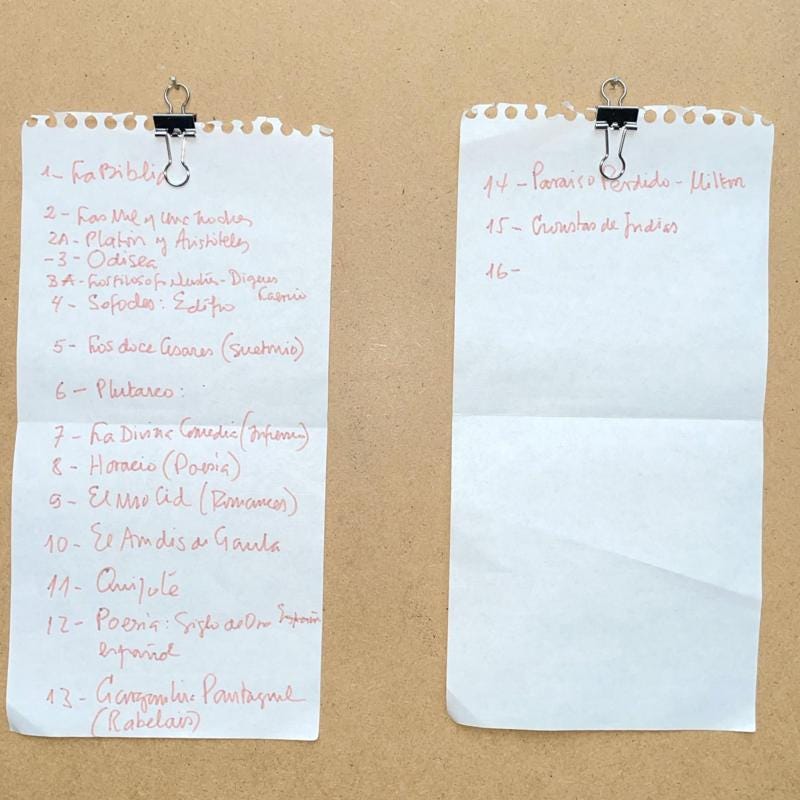 1- La Biblia
2- Las Mil y una noches
2A- Platón y Aristóteles
-3- Odisea
3A- Los filósofos - Diógenes
Laercio
4- Sófocles: Edipo
5- Los doce Césares (Suetonio)
6- Plutarco:
7- La Divina Comedia (Infierno)
8- Horacio (Poesía)
9- El Mio Cid (Romances)
10- El Amdis de Gaula
11- Quijote
12- Poesía: Siglo de Oro
español
13- Gargantúa Pantagruel
(Rabelais)
14- Paraiso Perdido - Milton
15- Cronistas de Indias
16-